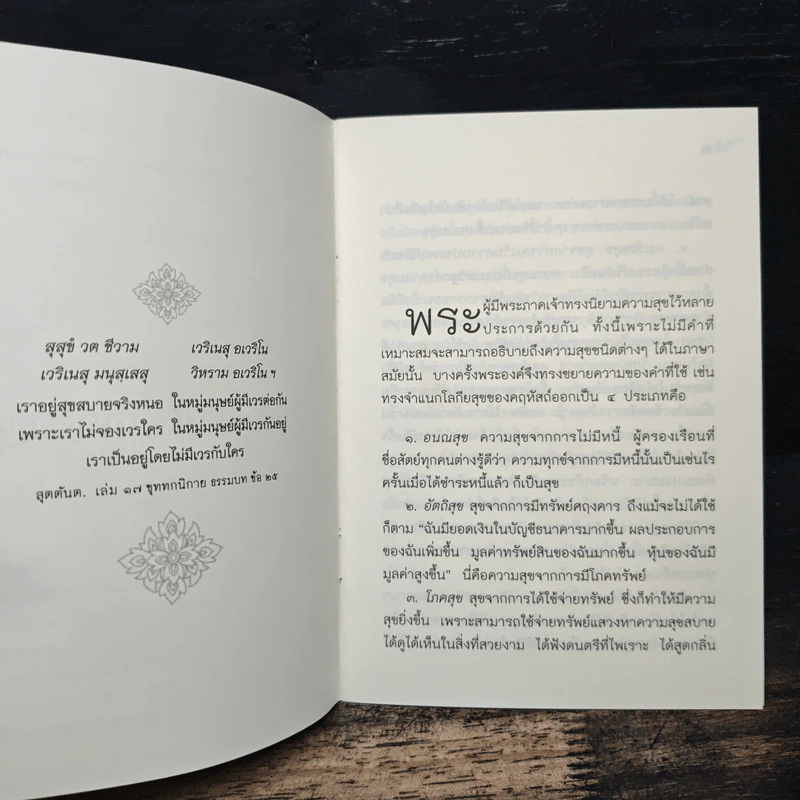 สุสุขํ วต ชีวาม เวริเนสุ อเวริโน
เวริเนสุ มนุสฺเสสุ วิหราม อเวริโน ฯ
เราอยู่สุขสบายจริงหนอ ในหมู่มนุษย์ผู้มีเวรต่อกัน
เพราะเราไม่จองเวรใคร ในหมู่มนุษย์ผู้มีเวรกันอยู่
เราเป็นอยู่โดยไม่มีเวรกับใคร
สุตตันต. เล่ม ๑๗ ขุททกนิกาย ธรรมบท ข้อ ๒๕
พระผู้มีพระภาคเจ้าทรงนิยามความสุขไว้หลาย
ประการด้วยกัน ทั้งนี้เพราะไม่มีคำที่
เหมาะสมจะสามารถอธิบายถึงความสุขชนิดต่างๆ ได้ในภาษา
สมัยนั้น บางครั้งพระองค์จึงทรงขยายความของคำที่ใช้ เช่น
ทรงจำแนกโลกียสุขของคฤหัสถ์ออกเป็น ๔ ประเภทคือ
๑. อนณสุข ความสุขจากการไม่มีหนี้ ผู้ครองเรือนที่
ซื่อสัตย์ทุกคนต่างรู้ดีว่า ความทุกข์จากการมีหนี้นั้นเป็นเช่นไร
ครั้นเมื่อได้ชำระหนี้แล้ว ก็เป็นสุข
๒. อัตถิสุข สุขจากการมีทรัพย์ศฤงคาร ถึงแม้จะไม่ได้ใช้
ก็ตาม “ฉันมียอดเงินในบัญชีธนาคารมากขึ้น ผลประกอบการ
ของฉันเพิ่มขึ้น มูลค่าทรัพย์สินของฉันมากขึ้น หุ้นของฉันมี
มูลค่าสูงขึ้น” นี่คือความสุขจากการมีโภคทรัพย์
๓. โภคสุข สุขจากการได้ใช้จ่ายทรัพย์ ซึ่งก็ทำให้มีความ
สุขยิ่งขึ้น เพราะสามารถใช้จ่ายทรัพย์แสวงหาความสุขสบาย
ได้ดูได้เห็นในสิ่งที่สวยงาม ได้ฟังดนตรีที่ไพเราะ ได้สูดกลิ่น